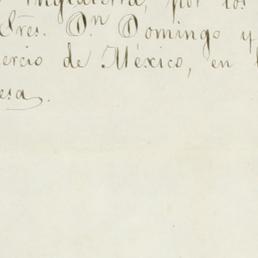 Inglaterra, por los
Sres. Dn. Domingo y
ercio de México, en l
esa.